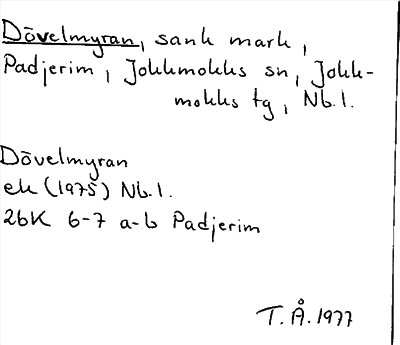 Dövelmyran, sank mark,
Padjerim, Jokkmokks sn, Jokk-
mokks tg, Nb.l.
Dövelmyran
ek (1975) Nb.l.
26K 6-7 a-b Padjerim
T.Å. 1977